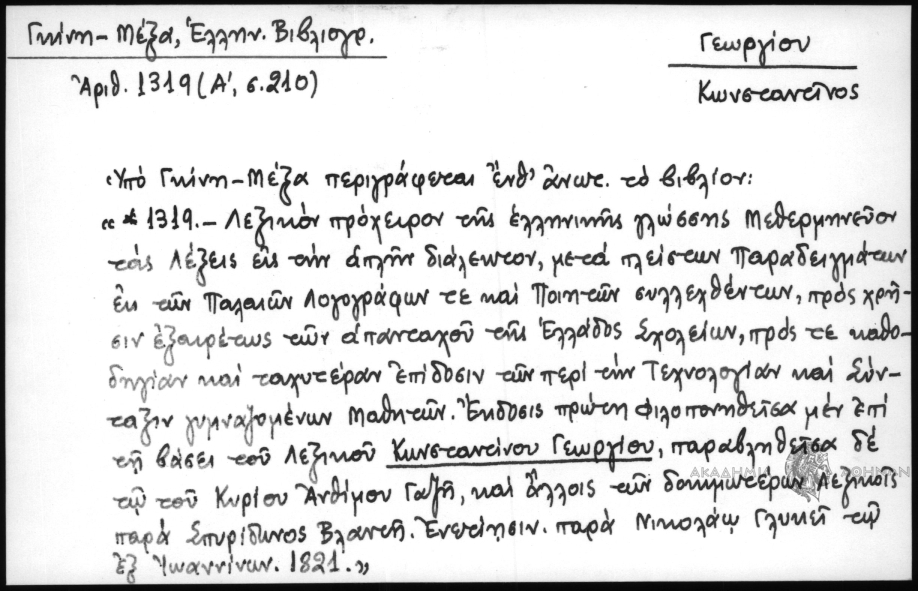 Γκίνη-Μέξα, Ἑλλην. Βιβλιογρ.
Ἀριθ. 1319 (Α', σ.210)
Γεωργίου
Κωνσταντῖνος
Ὑπό Γκίνη-Μέξα περιγράφεται ἔνθ' ἄνωτ. τό βιβλίον:
«* 1319.- Λεξικόν πρόχειρον τῆς ἑλληνικῆς γλώσσης Μεθερμηνεῦον
τάς Λέξεις εἰς τήν ἁπλῆν διάλεκτον, μετά πλείστων Παραδειγμάτων
ἐκ τῶν Παλαιῶν Λογογράφων τε καί Ποιητῶν συλλεχθέντων, πρός χρῆ-
σιν ἐξαιρέτως τῶν ἁπανταχοῦ τῆς Ἑλλάδος Σχολείων, πρός τε καθο-
δηγίαν καί ταχυτέραν ἐπίδοσιν τῶν περί τήν Τεχνολογίαν καί Σύν-
ταξιν γυμναζομένων Μαθητῶν. Ἔκδοσις πρώτη φιλοπονηθεῖσα μέν ἐπί
τῇ βάσει τοῦ Λεξικοῦ Κωνσταντίνου Γεωργίου, παραβληθεῖσα δέ
τῷ τοῦ Κυρίου Ἀνθίμου Γαζῆ, καί ἄλλοις τῶν δοκιμωτέρων Λεξικοῖς
παρά Σπυρίδωνος Βλαντῆ. Ἐνετίῃσιν. παρά Νικολάῳ Γλυκεῖ τῷ
ἐξ Ἰωαννίνων. 1821.»
ΑΚΑΔΗΜΙΑ ΑΘΗΝΩΝ